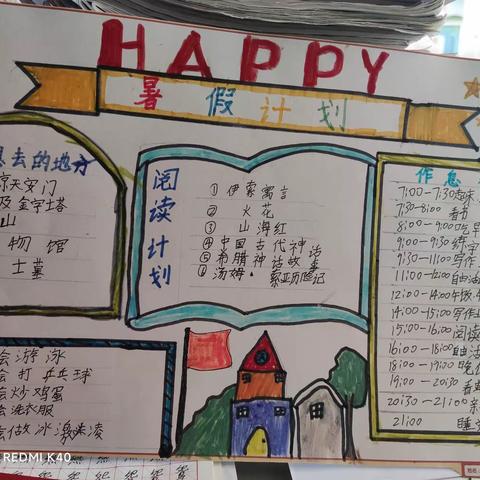 HAPPY
暑假计划
想去的地方
京天安门
及金字塔
山
物馆
土墓
阅读计划
① 伊索寓言
② 火花
③ 山海红
④ 中国古代神话
⑤ 希腊神话故事
⑥ 汤姆·索亚历险记
作息
7:00-7:30起床
7:30-8:00 看书
8:00-9:00吃早
9:00-9:30练字
9:30-11:00写作
11:00-12:00自由
12:00-14:00午饭
14:00-15:00写作
15:00-16:00阅读
16:00-18:00自由活
18:00-19:00吃饭
19:00-20:30看
20:30-21:00亲
21:00 睡
会游泳
会打乒乓球
会炒鸡蛋
会洗衣服
会做冰激凌
REDMI K40